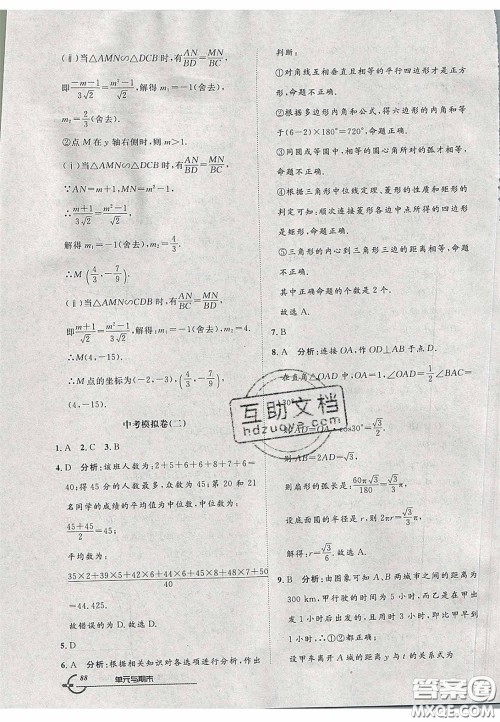 (ⅱ)当△AMN∽△DCB时,有AN/BD=MN/BC,
即(-m-1)/(3√2)=(m²-1)/√2,解得m₁=-1(舍去),
m₂=2/3(舍去)
②点M在y轴右侧时,则m>1.
(ⅰ)当△AMN∽△DCB时,有AN/BD=MN/BC
∵AN=m+1,MN=m²-1,
∴(m+1)/√2=(m²-1)/(3√2)
解得m₁=-1(舍去),m₂=4/3.
∴M(4/3,-7/9)
(ⅱ)当△AMN∽CDB时,有AN/BC=MN/BD
即(m+1)/(3√2)=(m²-1)/√2,解得:m₁=-1(舍去),m₂=4.
∴M(4,-15).
∴M点的坐标为(4,-15),(4/3,-7/9)
(4,-15).
中考模拟卷(二)
1. A 2. C 3. B
4. D 分析:该班人数为:2+5+6+6+8+7+6=
40;得45分的人数最多,众数为45;第20和21
名同学的成绩的平均值为中位数,中位数为:
(45+45)/2=45;
平均数为:
(35×2+39×5+42×6+44×6+45×8+48×7+50
40
=44.425.
故错误的为D.故选D.
5. D
6. A 分析:根据相关知识对各选项进行分析,
88 单元与期末
判断:
①对角线互相垂直且相等的平行四边形才是正方
形,命题不正确.
②根据多边形内角和公式,得六边形的内角和等于
(6-2)×180°=720°,命题正确.
③同圆或等圆中,相等的圆心角所对的弧相等,命
题不正确.
④根据三角形中位线定理、菱形的性质和矩形的
判定可知:顺次连接菱形各边中点所得的四边形
是矩形,命题正确.
⑤三角形的内心到三角形三边的距离相等,命题
不正确.
其中正确命题的个数是2个.
故选A.
7. B
8. A 分析:连接OA,作OD⊥AB于点D.
在直角△OAD中,OA=1,∠OAD=1/2∠BAC=
30°
则AD=OA·cos30°=√3/2.
则AB=2AD=√3,
则扇形的弧长是:60π√3/180=√3/3π
设底面圆的半径是r,则2πr=√3/3π,
解得:r=√3/6.故选A.
9. B 分析:由图象可知A、B两城市之间的距离为
300 km,甲行驶的时间为5小时,而乙是在甲出
发1小时后出发的,且用时3小时,即比甲早到1
小时,故①②都正确;
设甲车离开A城的距离y与t的关系式为
互助文档
hdzuoye.com
答案圈
MXQE.COM